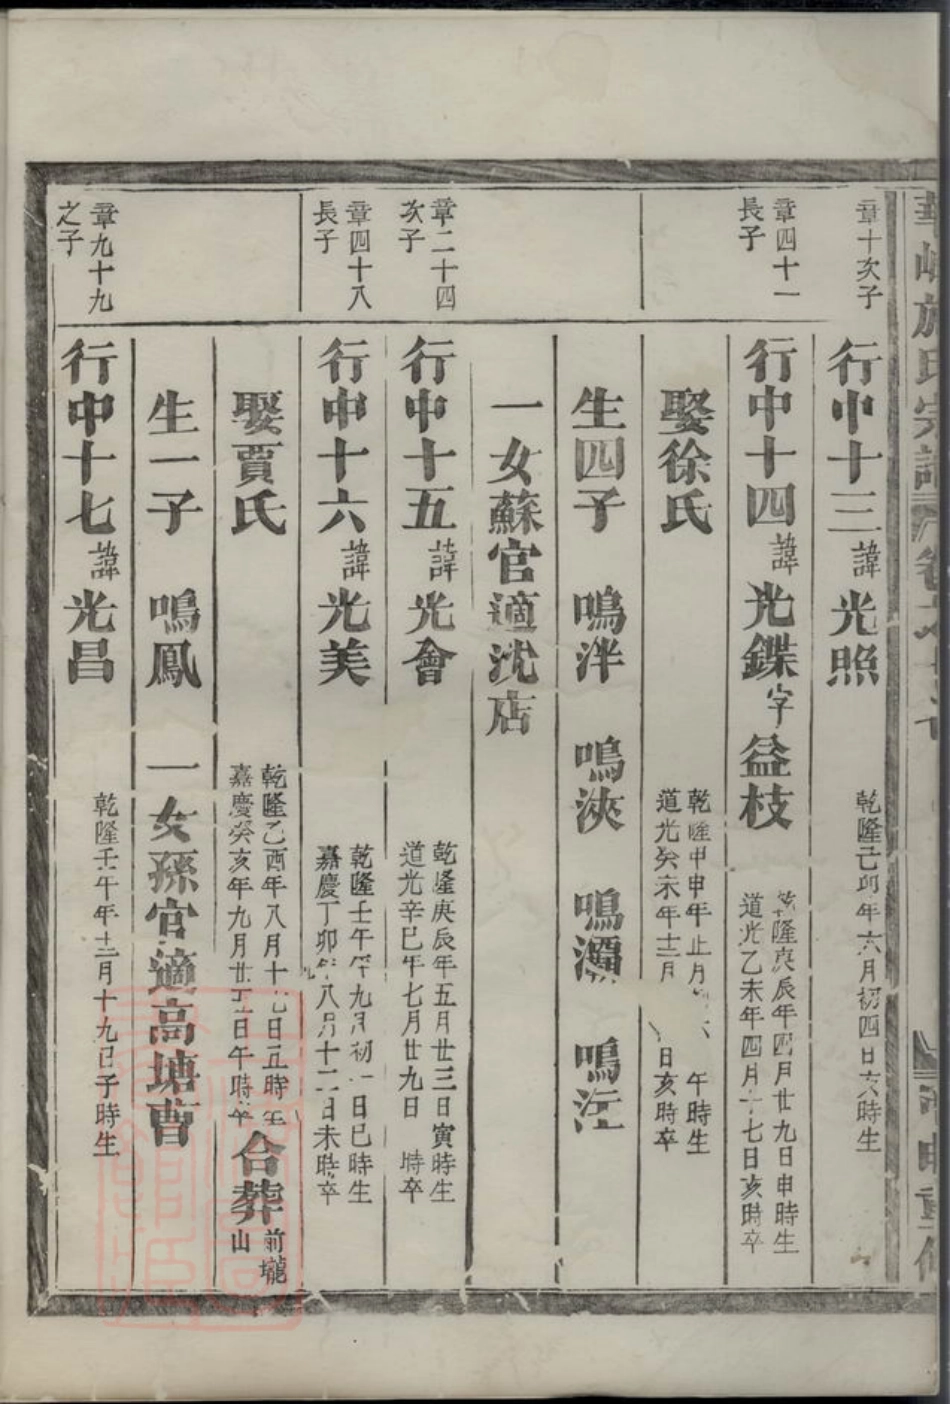 施氏宗譜
章十次子
行中十三諱光照
乾隆己卯年六月初四日亥時生
章四十一
長子
行中十四諱光鍱字益枝
乾隆庚辰年四月廿九日申時生
道光乙未年四月十七日亥時卒
娶徐氏
乾隆甲申年正月 午時生
道光癸未年十二月 日亥時卒
生四子 鳴泮 鳴浹 鳴 鳴沅
一女蘇官適沈店
章二十四
次子
行中十五諱光會
乾隆庚辰年五月廿三日寅時生
道光辛巳年七月廿九日 時卒
章四十八
長子
行中十六諱光美
乾隆壬午年九月初一日巳時生
嘉慶丁卯年八月十二日未時卒
娶賈氏
乾隆乙酉年八月十 日丑時生
嘉慶癸亥年九月廿 日午時卒
合葬前壠
山
生一子 鳴鳳 一女孫官適高塘曹
章九十九
之子
行中十七諱光昌
乾隆壬午年十二月十九日子時生